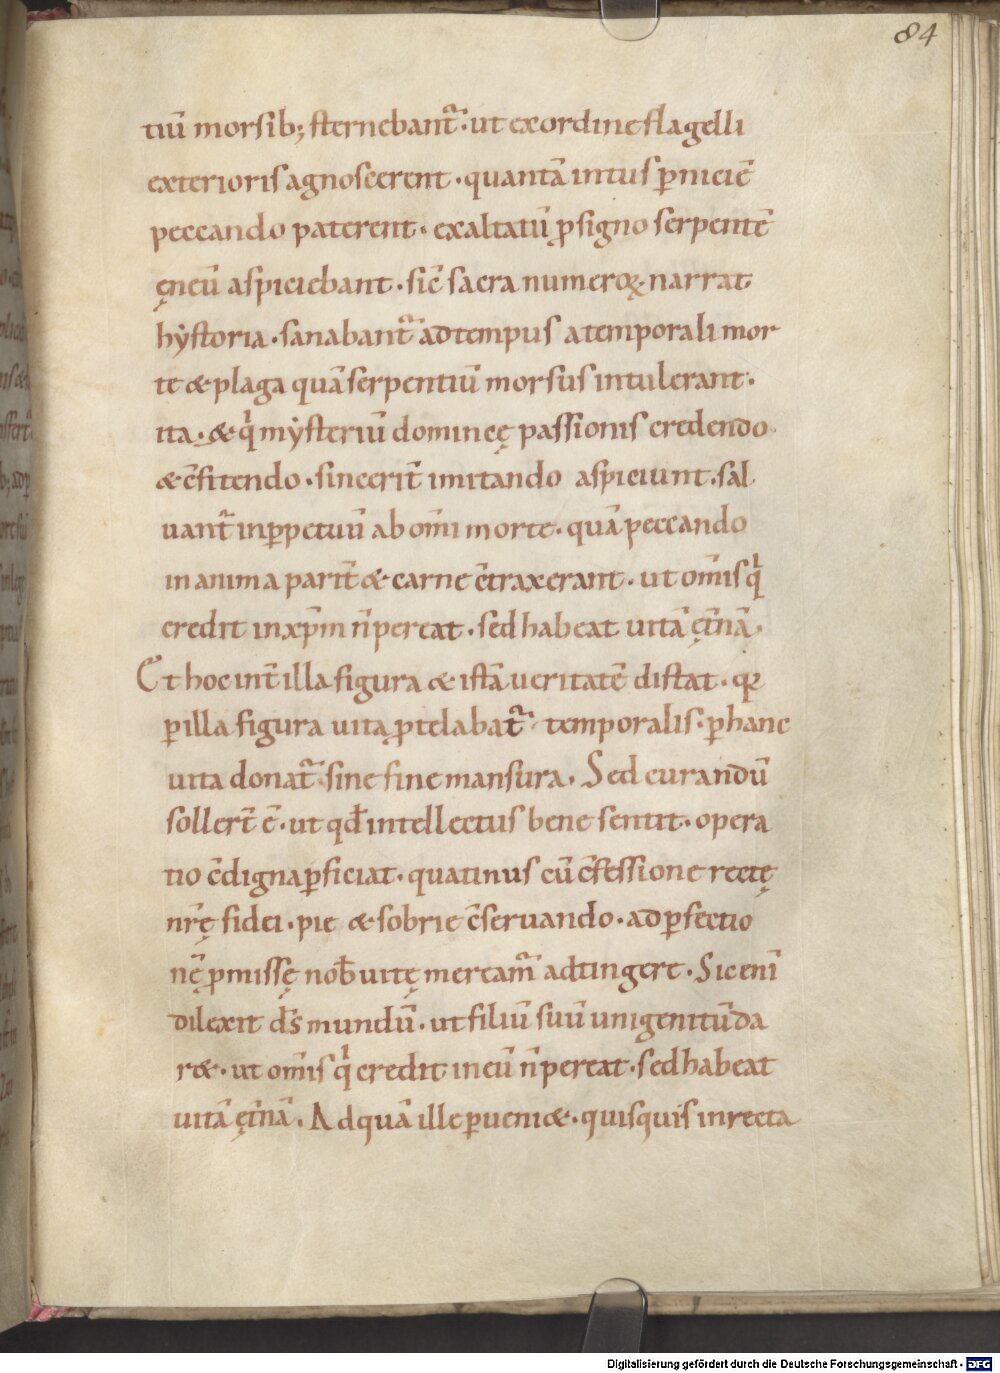 84
tiū morsib; sternebant᷑· ut ex ordine flagelli
exterioris agnoscerent· quantā intus ꝑniciē
peccando paterent· exaltatū ꝓ signo serpentē
ęneū aspiciebant· sic̄ sacra numeroꝝ narrat
hẏstoria· sanabant᷑ ad tempus a temporali mor
te & plaga quā serpentiū morsus intulerant·
ita· & qͥ mẏsteriū dominicę passionis credendo
& c̄fitendo· sincerit̄ imitando aspiciunt· sal
uant᷑ inꝑpetuū ab om̄i morte· quā peccando
in anima parit̄ & carne c̄traxerant· ut om̄is qͥ
credit in xp̄m n̄ pereat· sed habeat uitā ęt̄nā·
Et hoc int̄ illa figura & istā ueritatē distat· qꝛ
ꝑ illa figura uita ꝓtelabat᷑· temporalis· ꝑ hanc
uita donat᷑ sine fine mansura· Sed curandū
sollert̄ ē· ut qđ intellectus bene sentit· opera
tio c̄digna ꝑficiat· quatinus cū c̄fessione rectę
nr̄ę fidei· pie & sobrie c̄seruando· ad ꝑfectio
nē ꝓmissę nob̄ uitę meream᷑ adtingere· Sic eni̅
dilexit d̄s mundū· ut filiū suū unigenitū da
r&· ut om̄is qͥ credit in eū n̄ pereat· sed habeat
uitā ęt̄nā· Ad quā ille ꝑueni&· quisquis in recta
Digitalisierung gefördert durch die Deutsche Forschungsgemeinschaft - DFG